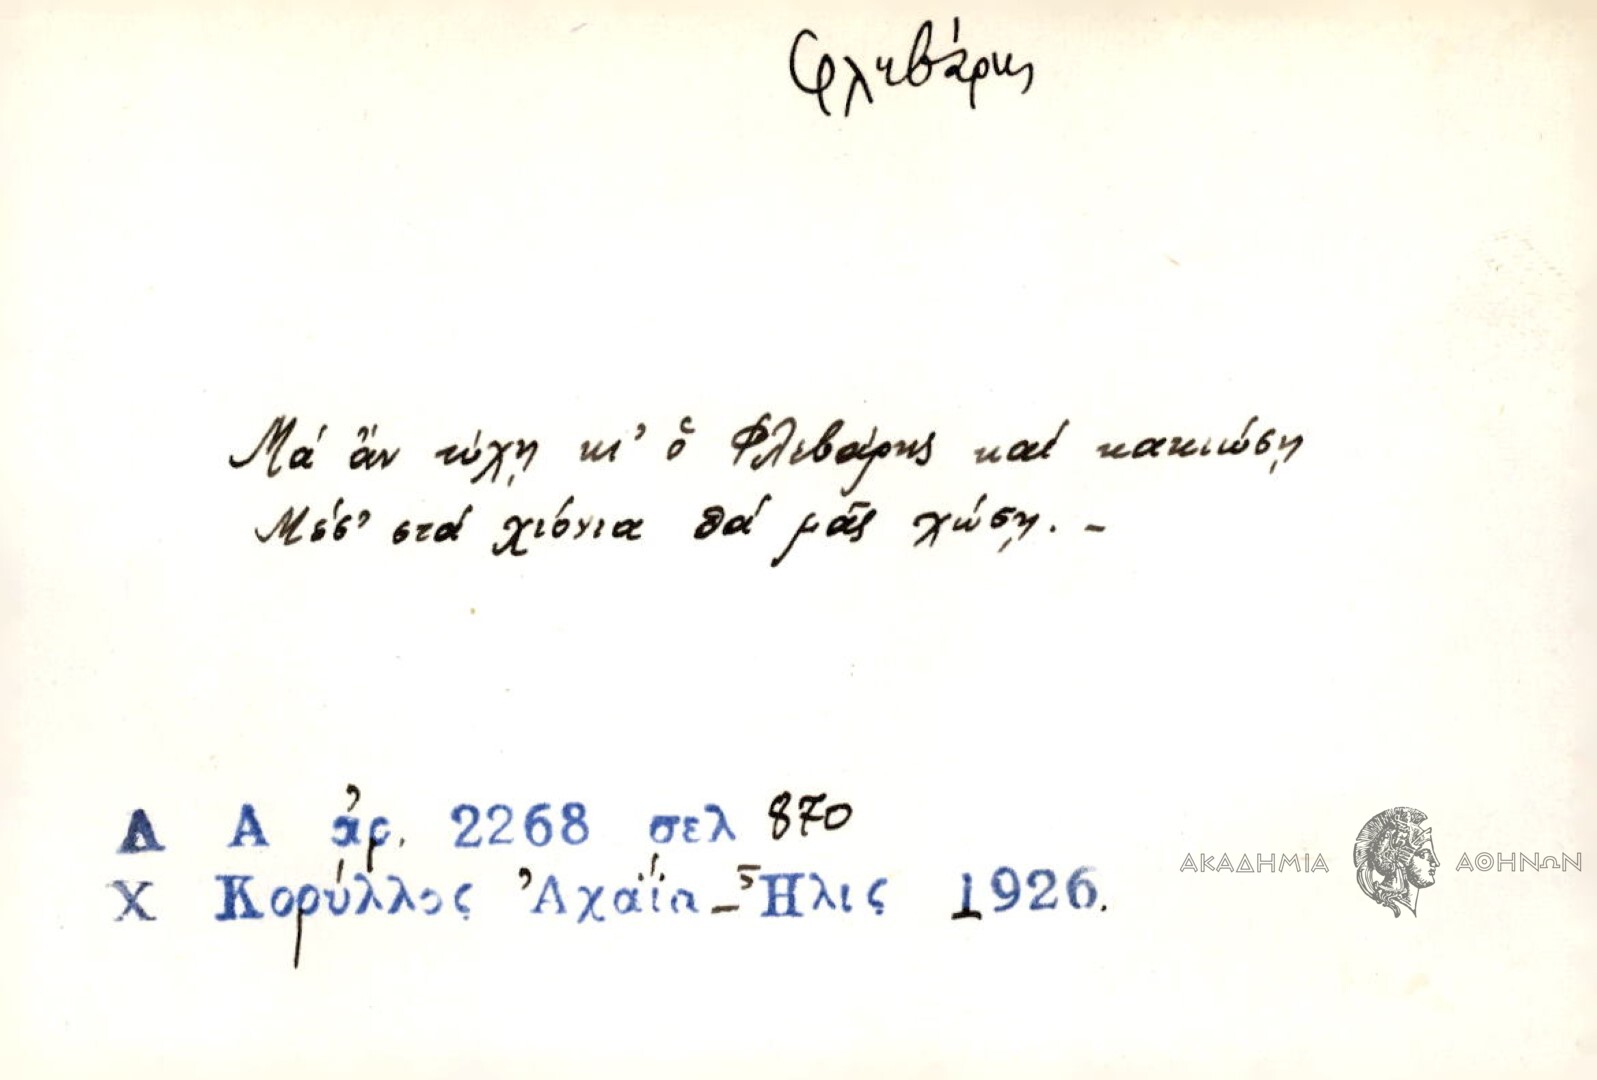 Φλεβάρης
Μά ἄν τύχῃ κι' ὁ Φλεβάρης καί κακιώσῃ
Μέσ' στά χιόνια θά μᾶς χώσῃ. –
Δ Α ἀρ. 2268 σελ 870
Χ Κορύλλος Ἀχαΐα – Ἦλις 1926.
ΑΚΑΔΗΜΙΑ ΑΘΗΝΩΝ